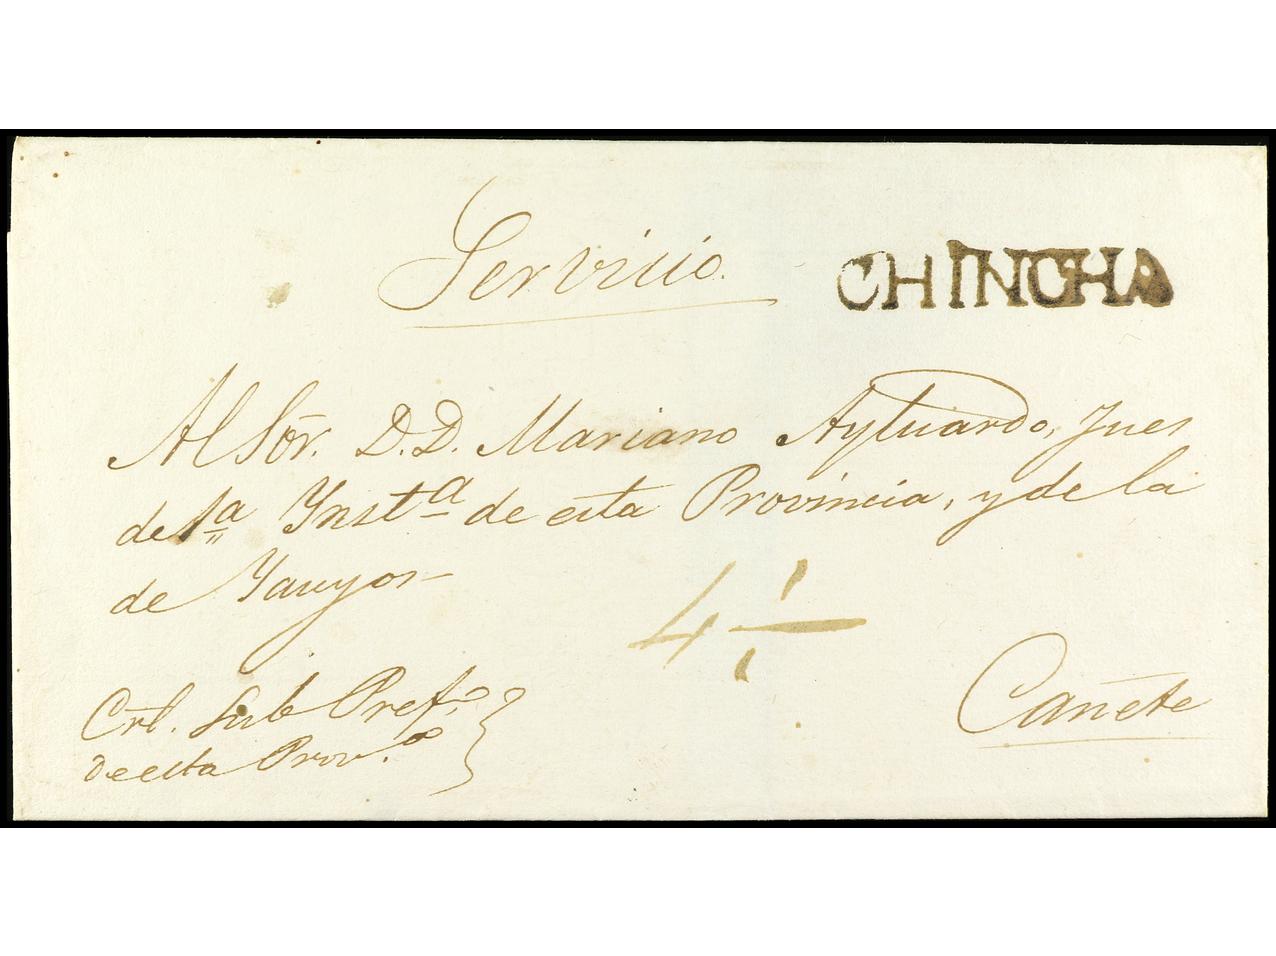 Servicio
CHINCHA
Al Sōr. D.D. Mariano Aytuardo, Jues
de 1ª Ynstª de esta Provincia, y de la
de Yauyos
4 ÷
Cañete
Crl. Sub Pref.º
de esta Prov.ª